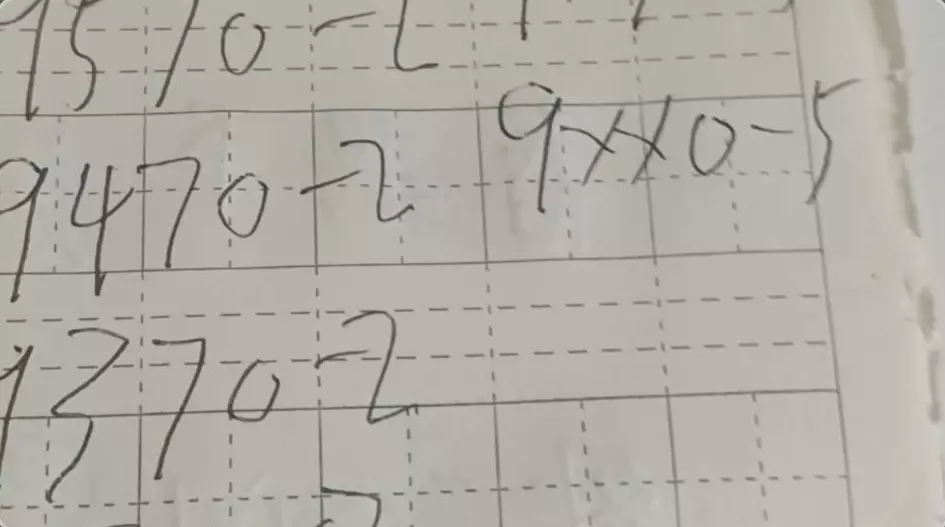 9570-2
9470-2 9xx0-5
9370-2